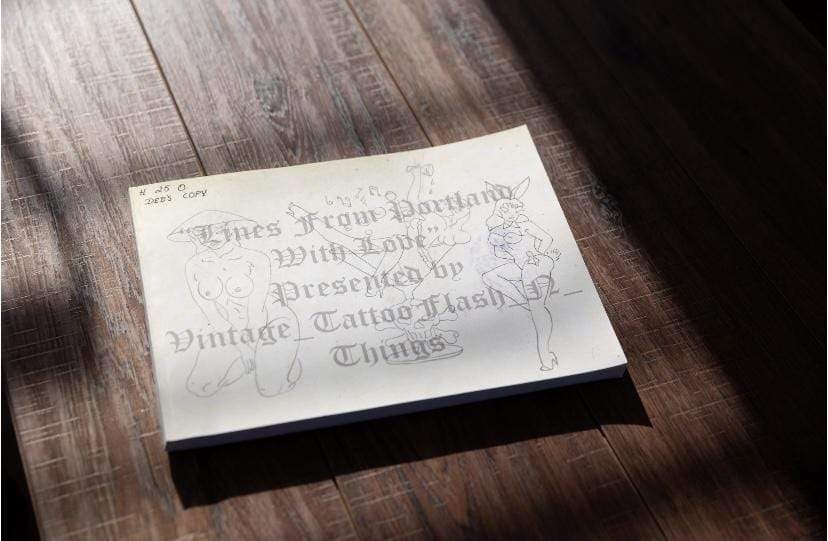 # 25 O
DEB'S COPY
"Lines From Portland
With Love"
Presented by
Vintage_TattooFlash_N_
Things